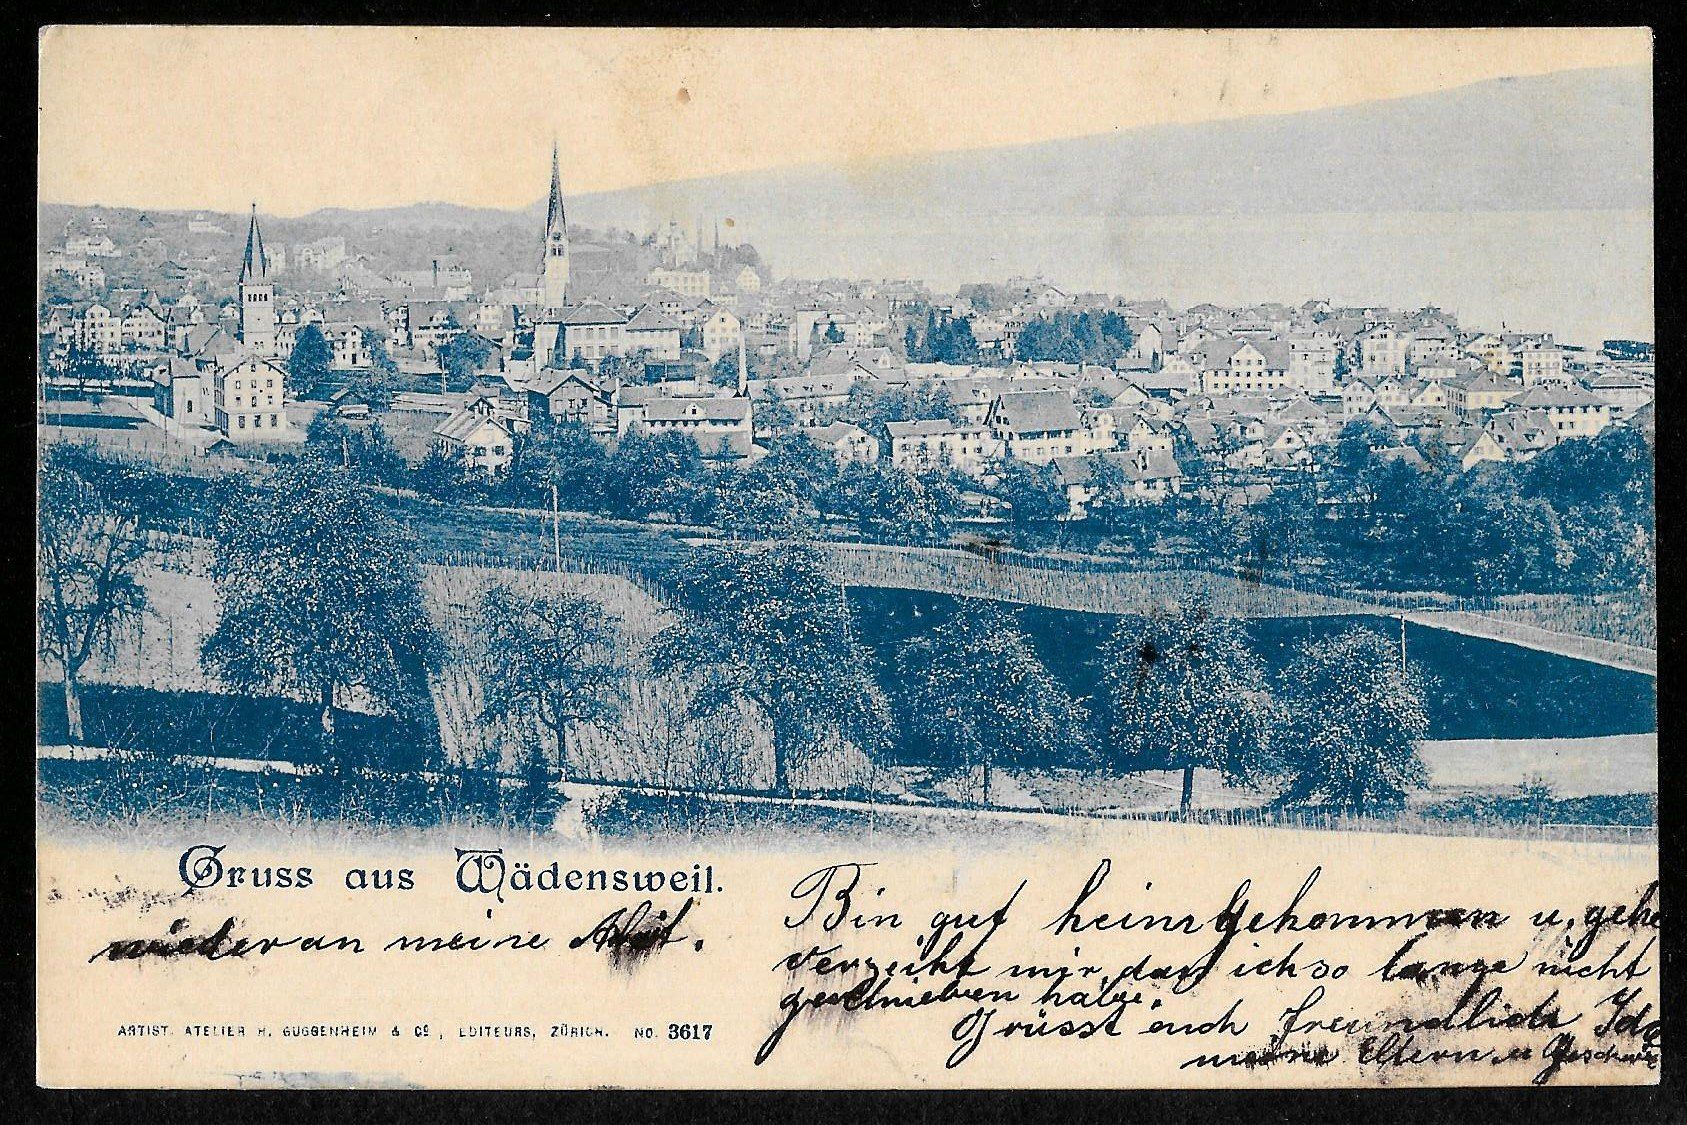 Gruss aus Wädensweil.
Bin gut heimgekommen u. gehe
wieder an meine Arbeit.
verzeiht mir, das ich so lange nicht
geschrieben habe.
Grüsst euch freundlich Ida
meine Eltern u Geschwis
ARTIST. ATELIER H. GUGGENHEIM & Co, EDITEURS, ZÜRICH. No. 3617